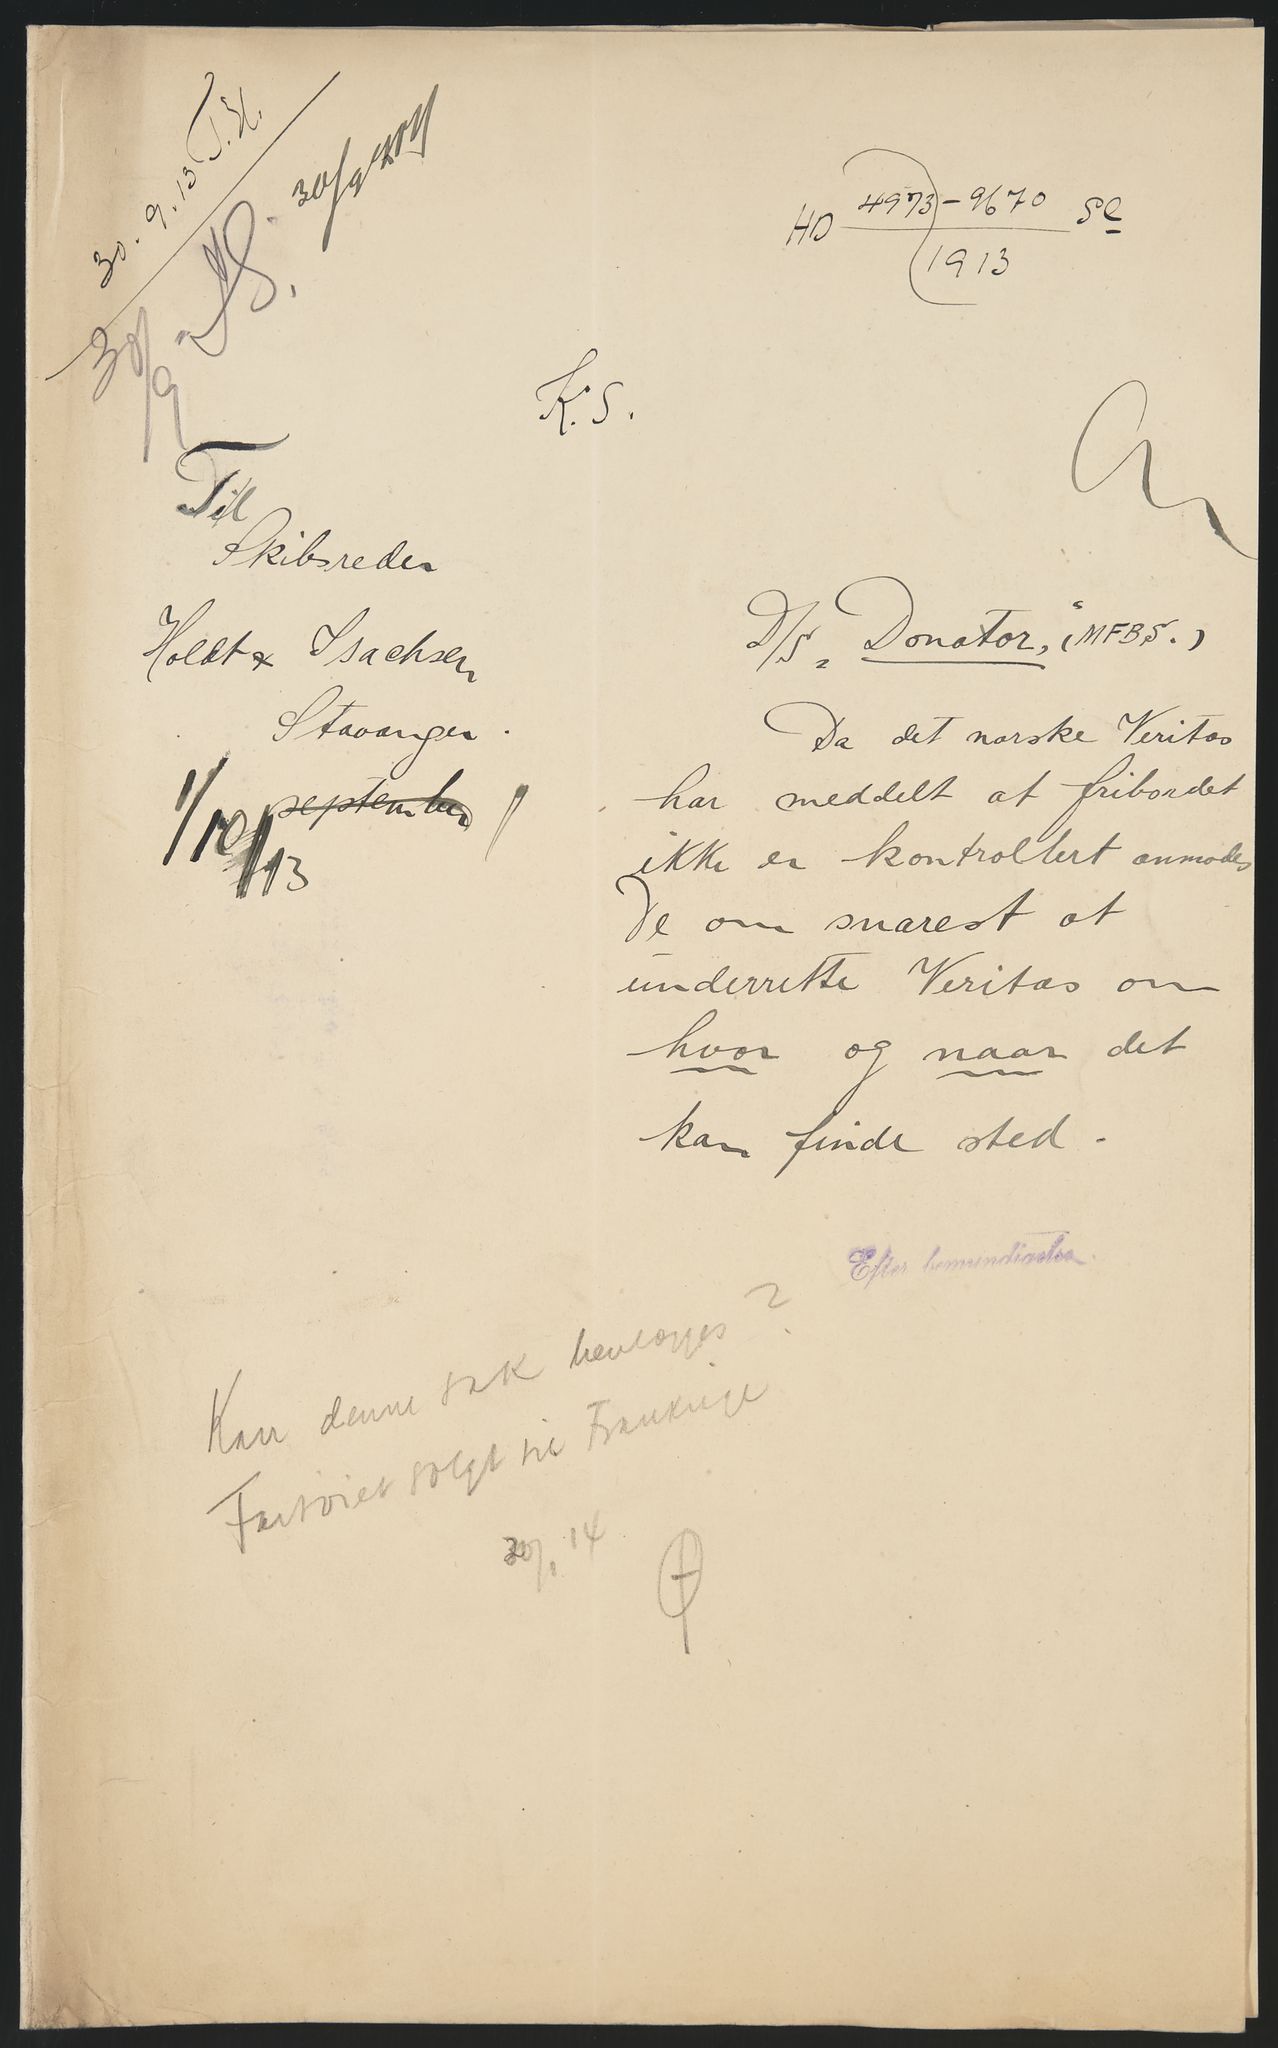 30.9.13 T.H.
30/9
30/9 S.
HD 4973-9670 Sl
1913
K.S.
Til
Skibsreder
Holdt & Isachsen
Stavanger.
september
1/10 13
D/S „Donator“, (MFBS.)
Da det norske Veritas
har meddelt at fribordet
ikke er kontrollert anmodes
De om snarest at
underrette Veritas om
hvor og naar det
kan finde sted.
Efter bemyndigelse.
Kan denne sak henlægges?
Fartøiet solgt til Frankrige
30/1 14